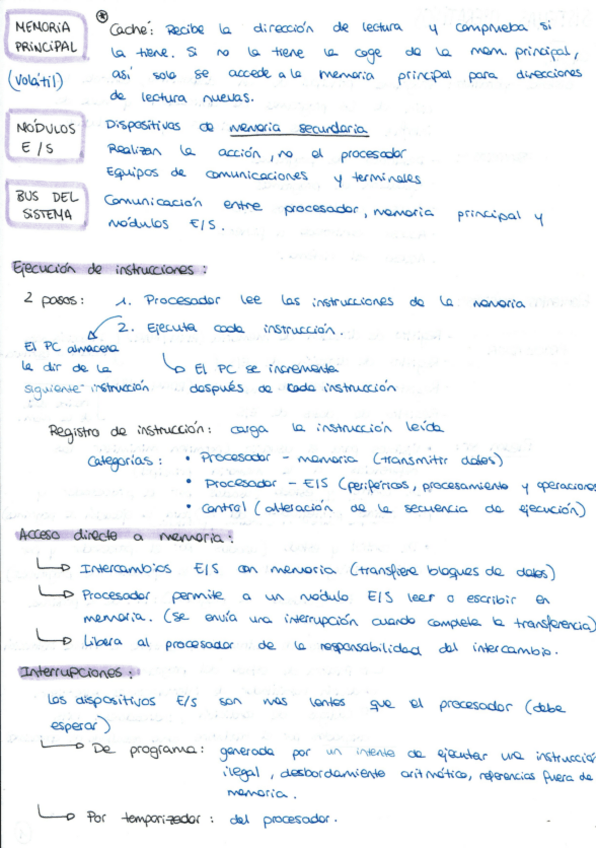 MEMORIA
PRINCIPAL
(volátil)
* Caché: Recibe la dirección de lectura y comprueba si
la tiene. Si no la tiene la coge de la mem. principal,
así solo se accede a la memoria principal para direcciones
de lectura nuevas.
MÓDULOS
E / S
Dispositivos de memoria secundaria
Realizan la acción, no el procesador
Equipos de comunicaciones y terminales
BUS DEL
SISTEMA
Comunicación entre procesador, memoria principal y
módulos E/S.
Ejecución de instrucciones:
2 pasos: 1. Procesador lee las instrucciones de la memoria
2. Ejecuta cada instrucción.
El PC almacena
la dir de la
siguiente instrucción
El PC se incrementa
después de cada instrucción
Registro de instrucción: carga la instrucción leída
Categorías: • Procesador - memoria (transmitir datos)
• Procesador - E/S (periféricos, procesamiento y operaciones
• Control (alteración de la secuencia de ejecución)
Acceso directo a memoria:
Intercambios E/S con memoria (transfiere bloques de datos)
Procesador permite a un módulo E/S leer o escribir en
memoria. (se envía una interrupción cuando completa la transferencia)
Libera al procesador de la responsabilidad del intercambio.
Interrupciones:
Los dispositivos E/S son más lentos que el procesador (debe
esperar)
De programa: generada por un intento de ejecutar una instrucció
ilegal, desbordamiento aritmético, referencias fuera de
memoria.
Por temporizador: del procesador.